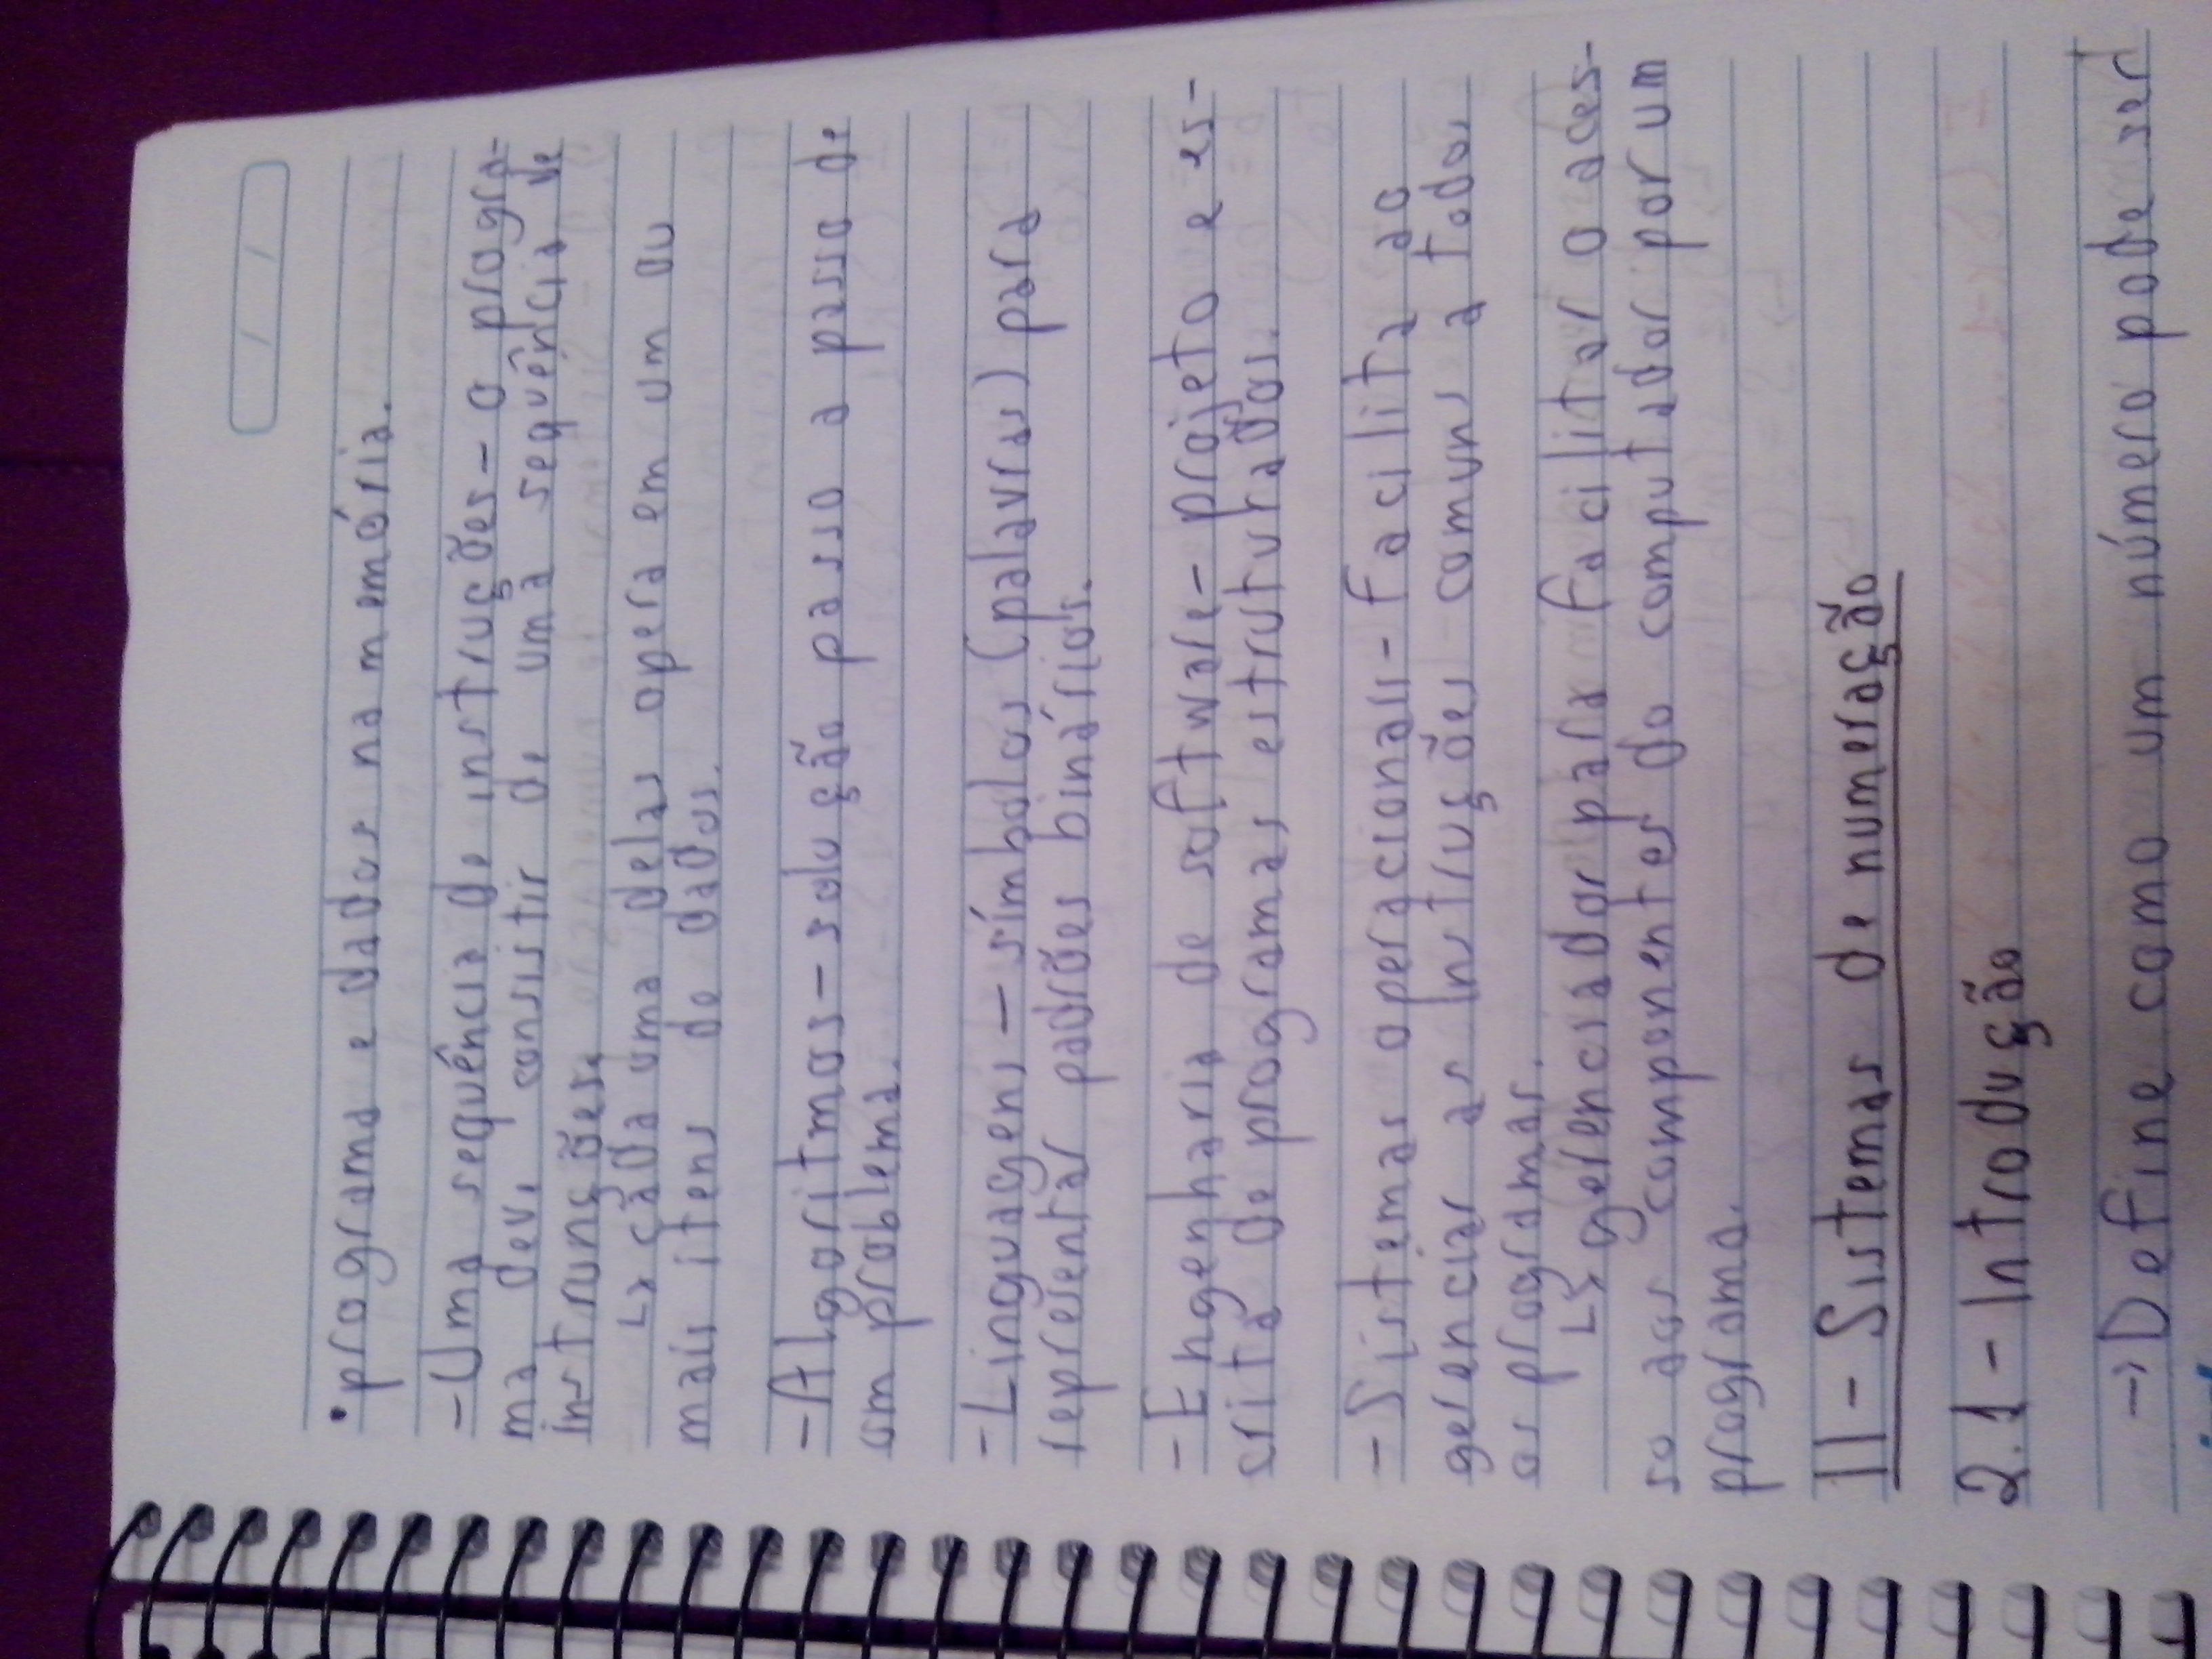 •programa e dados na memória.
-Uma sequência de instruções- o progra-
ma deve consistir de uma sequência de
instrunções.
↳ cada uma delas opera em um ou
mais itens de dados.
-Algoritmos-solução passo a passo de
um problema.
-Linguagens - símbolos (palavras) para
representar padrões binários.
-Engenharia de software- projeto e es-
crita de programas estruturados.
-Sistemas operacionais- Facilita ao
gerenciar as instruções comuns a todos
os programas.
↳ gerenciador para facilitar o aces-
so aos componentes do computador por um
programa.
II - Sistemas de numeração
2.1 - Introdução
→ Define como um número pode ser